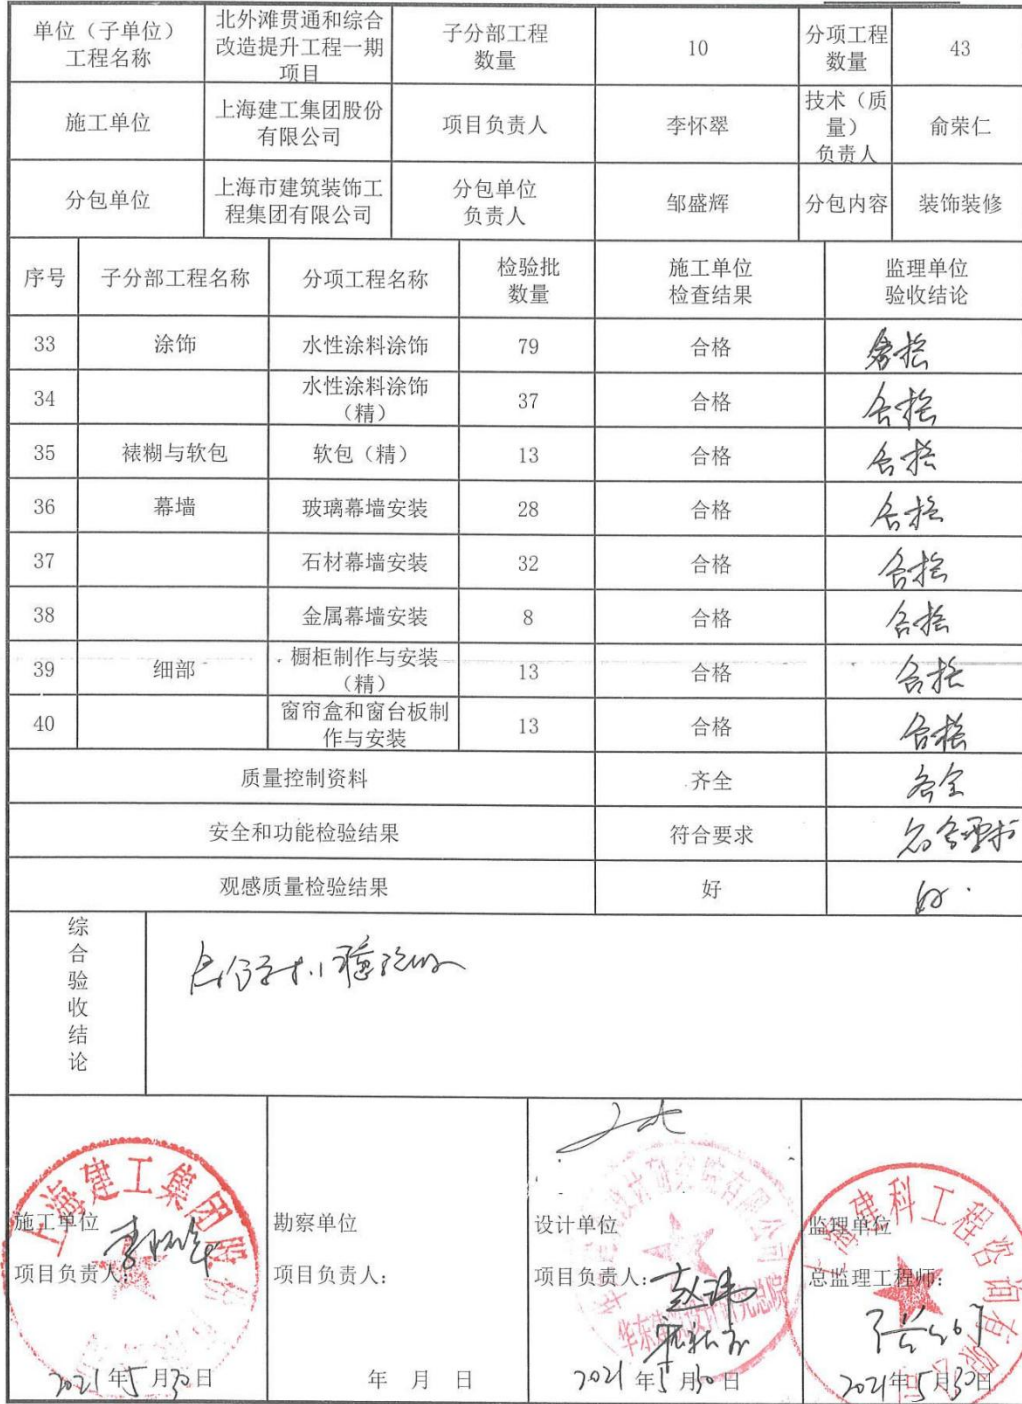 单位（子单位）
工程名称
北外滩贯通和综合
改造提升工程一期
项目
子分部工程
数量
10
分项工程
数量
43
施工单位
上海建工集团股份
有限公司
项目负责人
李怀翠
技术（质
量）
负责人
俞荣仁
分包单位
上海市建筑装饰工
程集团有限公司
分包单位
负责人
邹盛辉
分包内容
装饰装修
序号
子分部工程名称
分项工程名称
检验批
数量
施工单位
检查结果
监理单位
验收结论
33
涂饰
水性涂料涂饰
79
合格
合格
34
水性涂料涂饰
（精）
37
合格
合格
35
裱糊与软包
软包（精）
13
合格
合格
36
幕墙
玻璃幕墙安装
28
合格
合格
37
石材幕墙安装
32
合格
合格
38
金属幕墙安装
8
合格
合格
39
细部
橱柜制作与安装
（精）
13
合格
合格
40
窗帘盒和窗台板制
作与安装
13
合格
合格
质量控制资料
齐全
齐全
安全和功能检验结果
符合要求
符合要求
观感质量检验结果
好
好
综合验收结论
上海建工集团股
施工单位
项目负责人:
2021年5月30日
勘察单位
项目负责人:
年 月 日
华东建筑设计研究总院
设计单位
项目负责人:
赵玮
2021年5月30日
建科工程咨询有限公司
监理单位
总监理工程师:
2021年5月30日